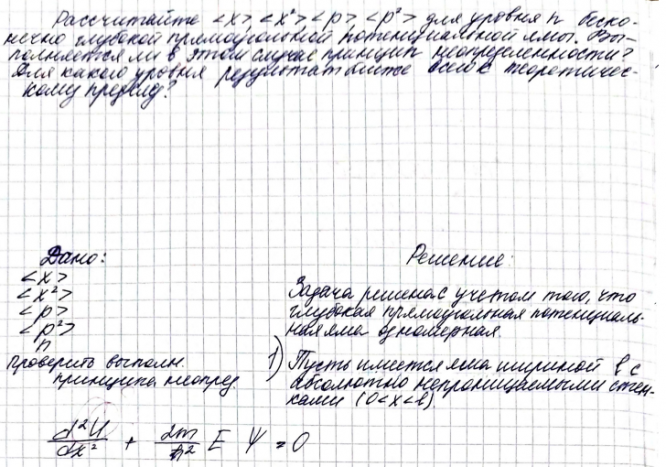 Рассчитайте <x>, <x²> <p>, <p²> для уровня n беско-
нечно глубокой прямоугольной потенциальной ямы. Вы-
полняется ли в этом случае принцип неопределенности?
Для какого уровня результат ближе всего к теоретичес-
кому пределу?
Дано:
<x>
<x²>
<p>
<p²>
n
проверить выполн.
принципа неопред
Решение:
Задача решена с учетом того, что
глубокая прямоугольная потенциаль-
ная яма одномерная.
1) Пусть имеется яма шириной l с
абсолютно непроницаемыми стен-
ками (0<x<l)
d²Ψ/dx² + 2m/ħ² E Ψ = 0